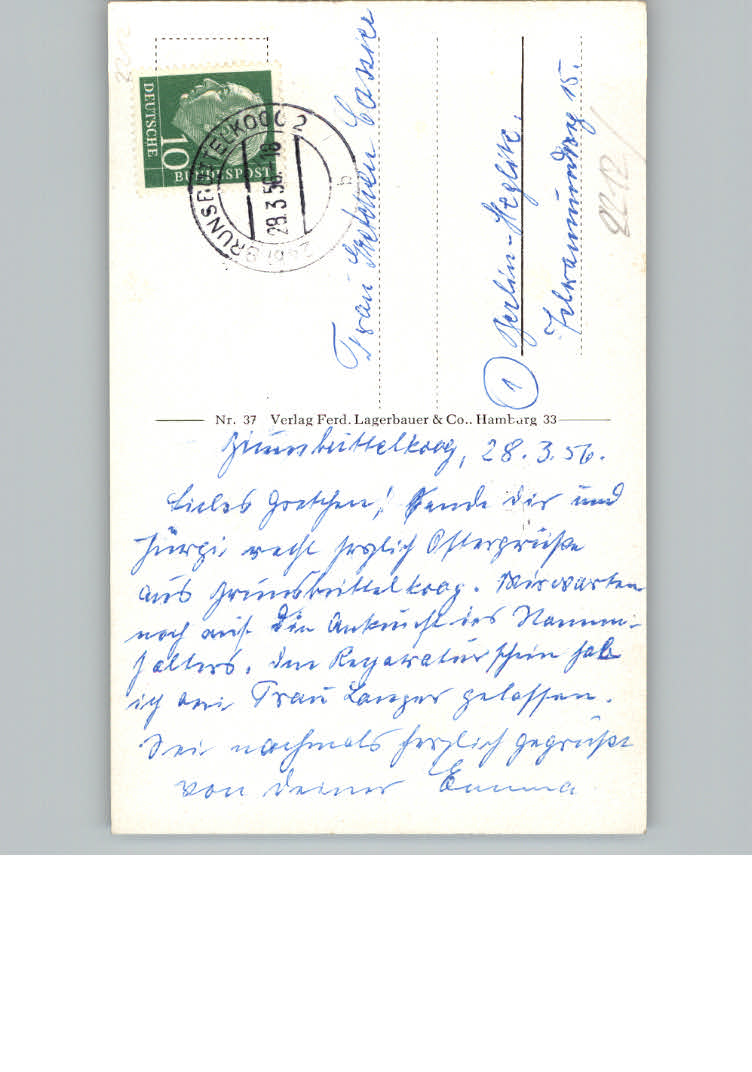 DEUTSCHE
10
BUNDESPOST
BRUNSBÜTTELKOOG 2
28.3.56.-18
b
Frau Gretchen
① Berlin-Steglitz.
15.
Nr. 37 Verlag Ferd. Lagerbauer & Co., Hamburg 33
Brunsbüttelkoog, 28.3.56.
Liebes Gretchen! Sende dir und
Jürgi recht herzlich Ostergrüße
aus Brunsbüttelkoog. Wir warten
noch auf die Ankunft des
halters. Den Reparaturschein hab
ich bei Frau Langer gelassen.
Sei nochmals herzlich gegrüßt
von deiner Emma